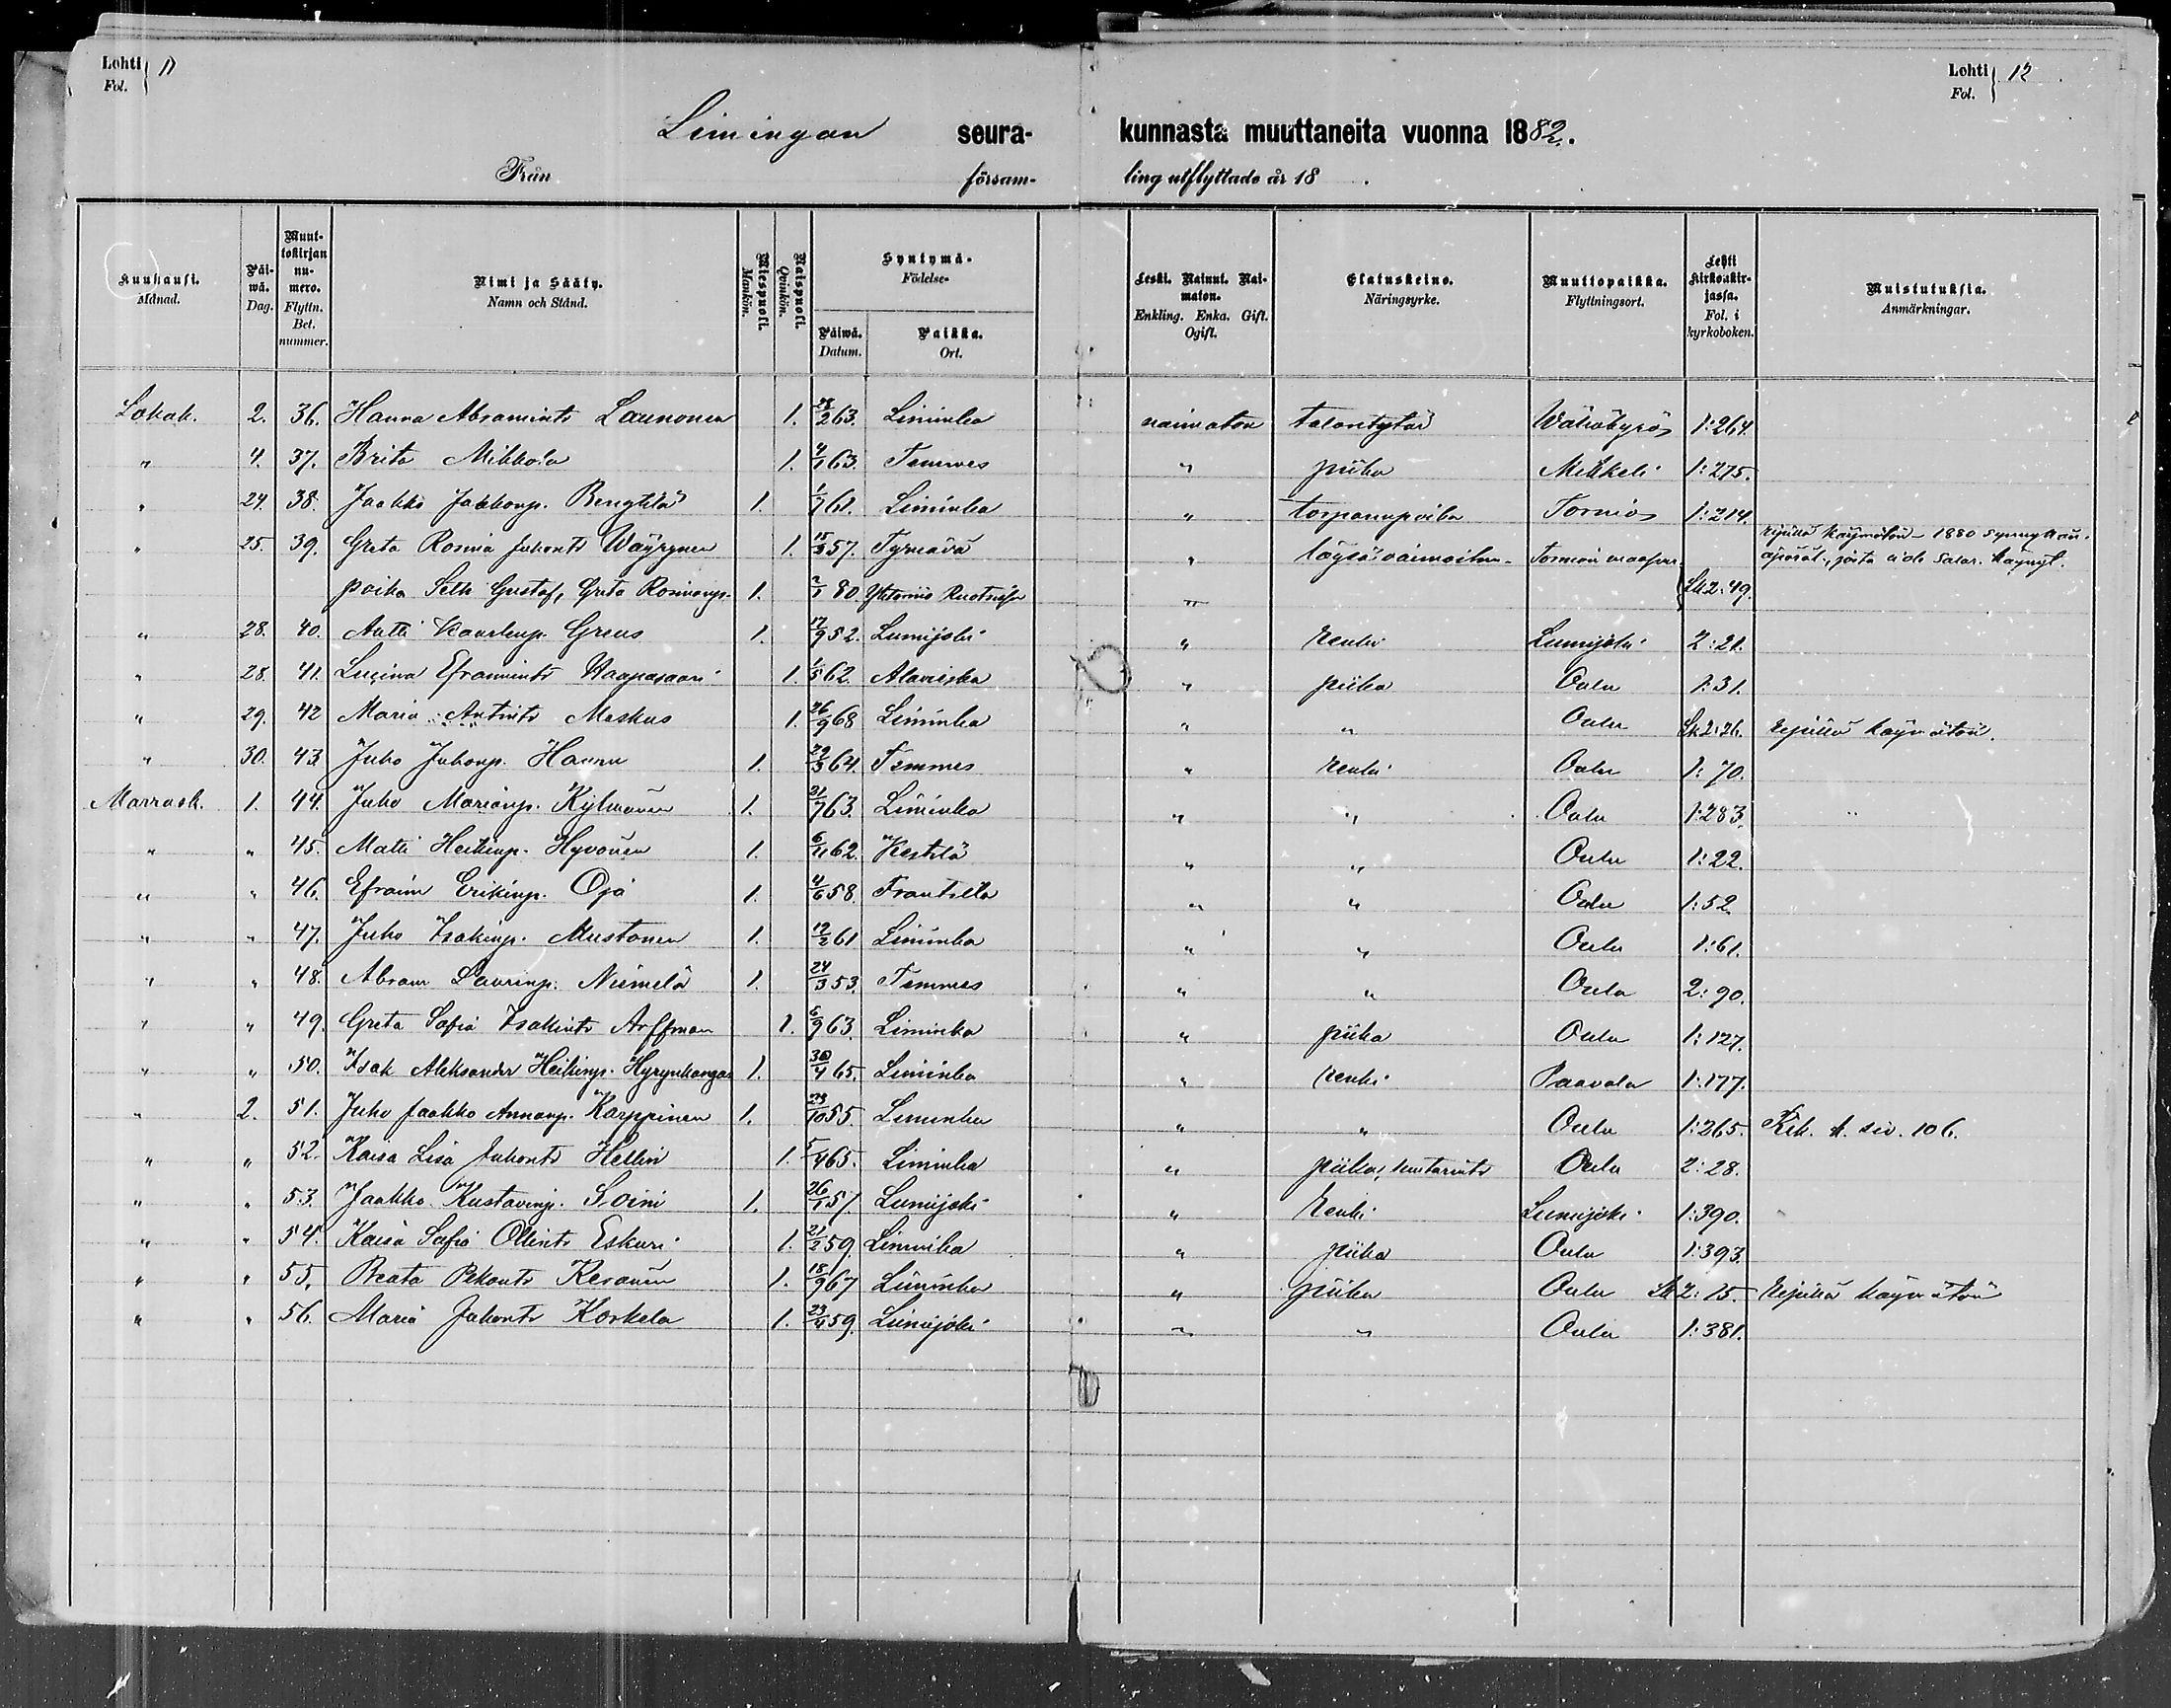 Lehti 11
Fol.
Lehti 12
Fol.
Limingan seura- kunnasta muuttaneita vuonna 1882.
Från försam- ling utflyttade år 18 .
Kuukausi. Månad. Päiwä. Dag. Muuttokirjan numero. Flyttn. Bet. nummer. Nimi ja Sääty. Namn och Stånd. Miespuoli. Mankön. Naispuoli. Qvinkön. Syntymä- Födelse- Päiwä. Datum. Paikka. Ort. Leski. Nainut. Naimaton. Enkling. Enka. Gift. Ogift. Elatuskeino. Näringsyrke. Muuttopaikka. Flyttningsort. Lehti kirkonkirjassa. Fol. i kyrkoboken. Muistutuksia. Anmärkningar.
Lokak. 2. 36. Hanna Abramints Launonen 1. 28/2 63. Liminka naimaton talontytär Wähäkyrö 1:264.
" 4. 37. Brita Mikkola 1. 4/1 63. Temmes " piika Mikkeli 1:275.
" 24. 38. Jaakko Jakkonp. Bengtilä 1. 1/7 61. Liminka " torpanpoika Tornio 1:214.
" 25. 39. Greta Rosina Juhonts Wäyrynen 1. 15/3 57. Tyrnävä " Tornion 1880
poika Seth Gustaf, Greta Rosinanp. 1. 2/1 80 " Lk 2:49.
" 28. 40. Antti Kaarlenp. Greus 1. 17/9 52. Lumijoki " renki Lumijoki 2:21.
" 28. 41. Lucina Eframints Haapasaari 1. 1/5 62. Alavieska " piika Oulu 1:31.
" 29. 42 Maria Antints Meskus 1. 26/9 68 Liminka " " Oulu Lk 2:26. Ripillä käymätön.
" 30. 43 Juho Juhonp. Hannu 1. 29/3 64. Temmes " renki Oulu 1:70.
Marrask. 1. 44. Juho Marianp. Kylmänen 1. 31/7 63. Liminka " " Oulu 1:283.
" " 45. Matti Heikinp. Hyvönen 1. 6/11 62. Kestilä " " Oulu 1:22.
" " 46. Efraim Erikinp. Oja 1. 4/6 58. Frantsila " " Oulu 1:52.
" " 47. Juho Isakinp. Mustonen 1. 12/2 61 Liminka " " Oulu 1:61.
" " 48. Abram Laurinp. Niemelä 1. 24/3 53. Temmes " " Oulu 2:90.
" " 49. Greta Sofia Isakints Arffman 1. 6/9 63. Liminka " piika Oulu 1:127.
" " 50. Isak Aleksander Heikinp. Hyrynkangas 1. 30/4 65. Liminka " renki Paavola 1:177.
" 2. 51. Juho Jaakko Annanp. Karppinen 1. 23/10 55. Liminka " " Oulu 1:265. siv. 106.
" " 52. Kaisa Lisa Juhonts Hellin 1. 5/4 65. Liminka " piika, Oulu 2:28.
" " 53. Jaakko Kustavinp. Soini 1. 26/1 57 Lumijoki " renki Lumijoki 1:390.
" " 54. Kaisa Sofia Ollints Eskuri 1. 21/2 59. Liminka " piika Oulu 1:393.
" " 55. Beata Pekonts Keränen 1. 18/9 67 Liminka " piika Oulu Lk 2:15. Ripillä käymätön
" " 56. Maria Juhonts Korkela 1. 23/4 59. Lumijoki " " Oulu 1:381.